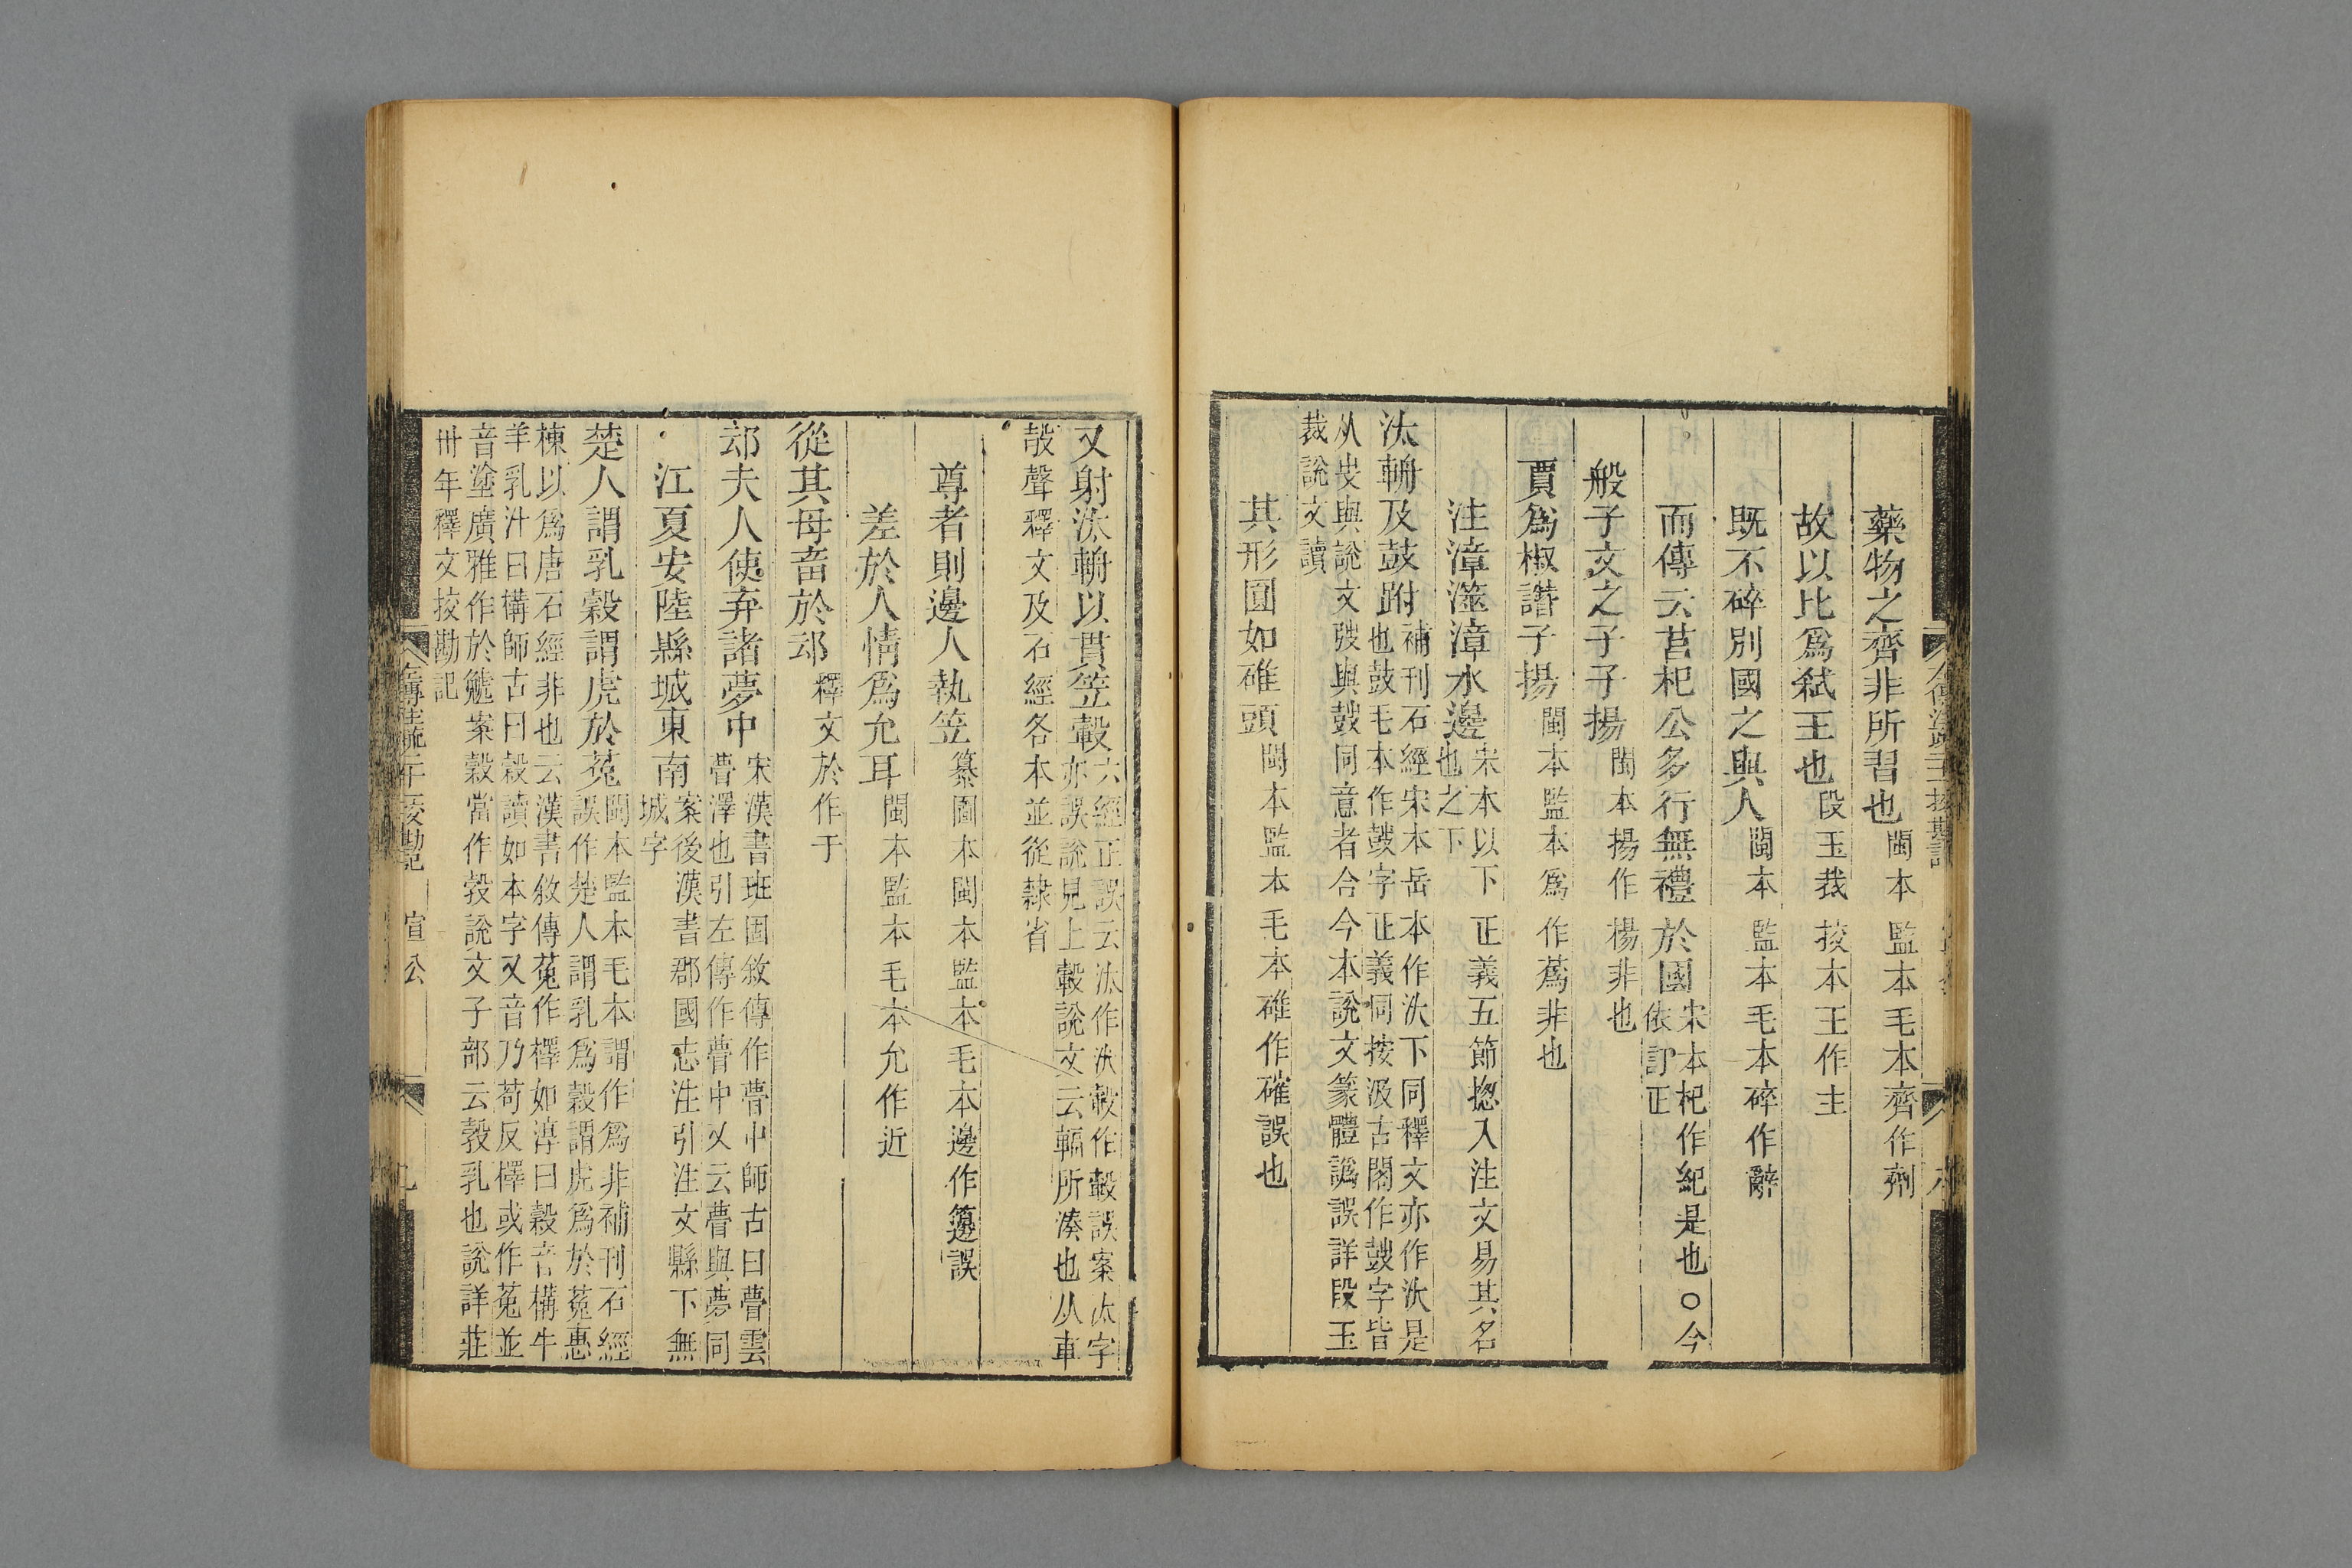 藥物之齊非所習也閩本監本毛本齊作劑
故以比爲弑王也段玉裁挍本王作主
既不碎別國之與人閩本監本毛本碎作辭
而傳云莒杞公多行無禮於國宋本杞作紀是也○今
依訂正
般子文之子子揚閩本揚作楊非也
賈爲椒譖子揚閩本監本爲作蔿非也
注漳澨漳水邊宋本以下正義五節揔入注文易其名
也之下
汰輈及鼓跗補刊石經宋本岳本作汏下同釋文亦作汏是
也鼓毛本作皷字正義同按汲古閣作鼓字皆
从攴與說文弢與鼓同意者合今本說文篆體譌誤詳段玉
裁說文讀
其形圓如碓頭閩本監本毛本碓作確誤也
又射汰輈以貫笠轂六經正誤云汰作汏轂作轂誤案汰字
亦誤說見上轂說文云輻所湊也从車
㱿聲釋文及石經各本並從隸省
尊者則邊人執笠纂圖本閩本監本毛本邊作籩誤
差於人情爲允耳閩本監本毛本允作近
從其母畜於䢵釋文於作于
䢵夫人使弃諸夢中宋漢書班固敘傳作瞢中師古曰瞢雲
瞢澤也引左傳作瞢中又云瞢與夢同
江夏安陸縣城東南案後漢書郡國志注引注文縣下無
城字
楚人謂乳穀謂虎於菟閩本監本毛本謂作爲非補刊石經
誤作楚人謂乳爲穀謂虎爲於菟惠
棟以爲唐石經非也云漢書敘傳菟作檡如淳曰穀音構牛
羊乳汁曰構師古曰穀讀如本字又音乃苟反檡或作菟並
音塗廣雅作於䖘案穀當作㝅說文子部云㝅乳也說詳莊
卅年釋文挍勘記
宣公